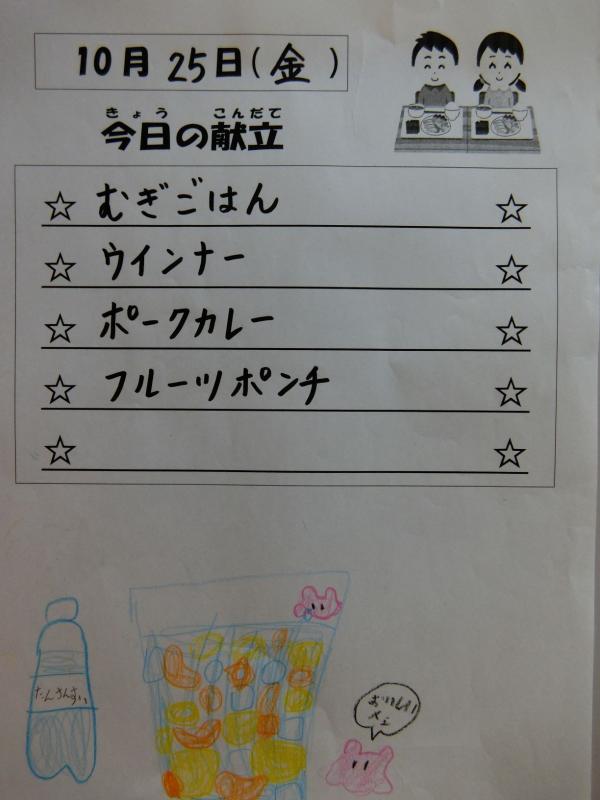 10月25日(金)
きょう こんだて
今日の献立
☆ むぎごはん ☆
☆ ウインナー ☆
☆ ポークカレー ☆
☆ フルーツポンチ ☆
☆ ☆
たんさんすい
おいしい